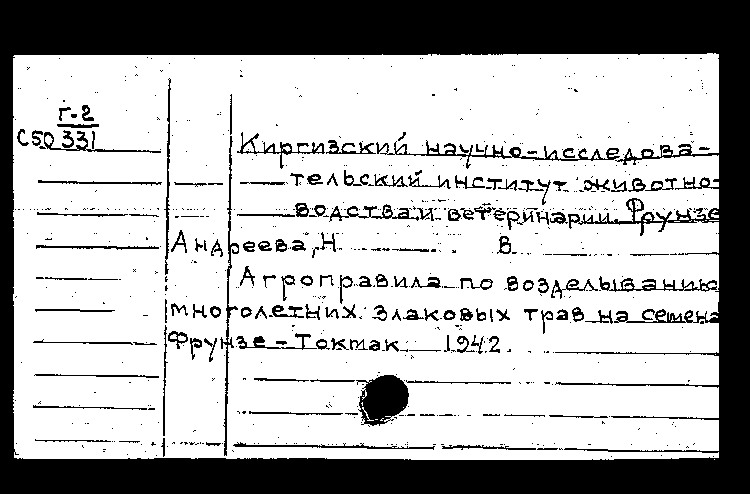 Г-2
С50331
Киргизский научно-исследова-
тельский институт животно-
водства и ветеринарии. Фрунзе
Андреева, Н В
Агроправила по возделыванию
многолетних злаковых трав на семена
Фрунзе - Токмак 1942.